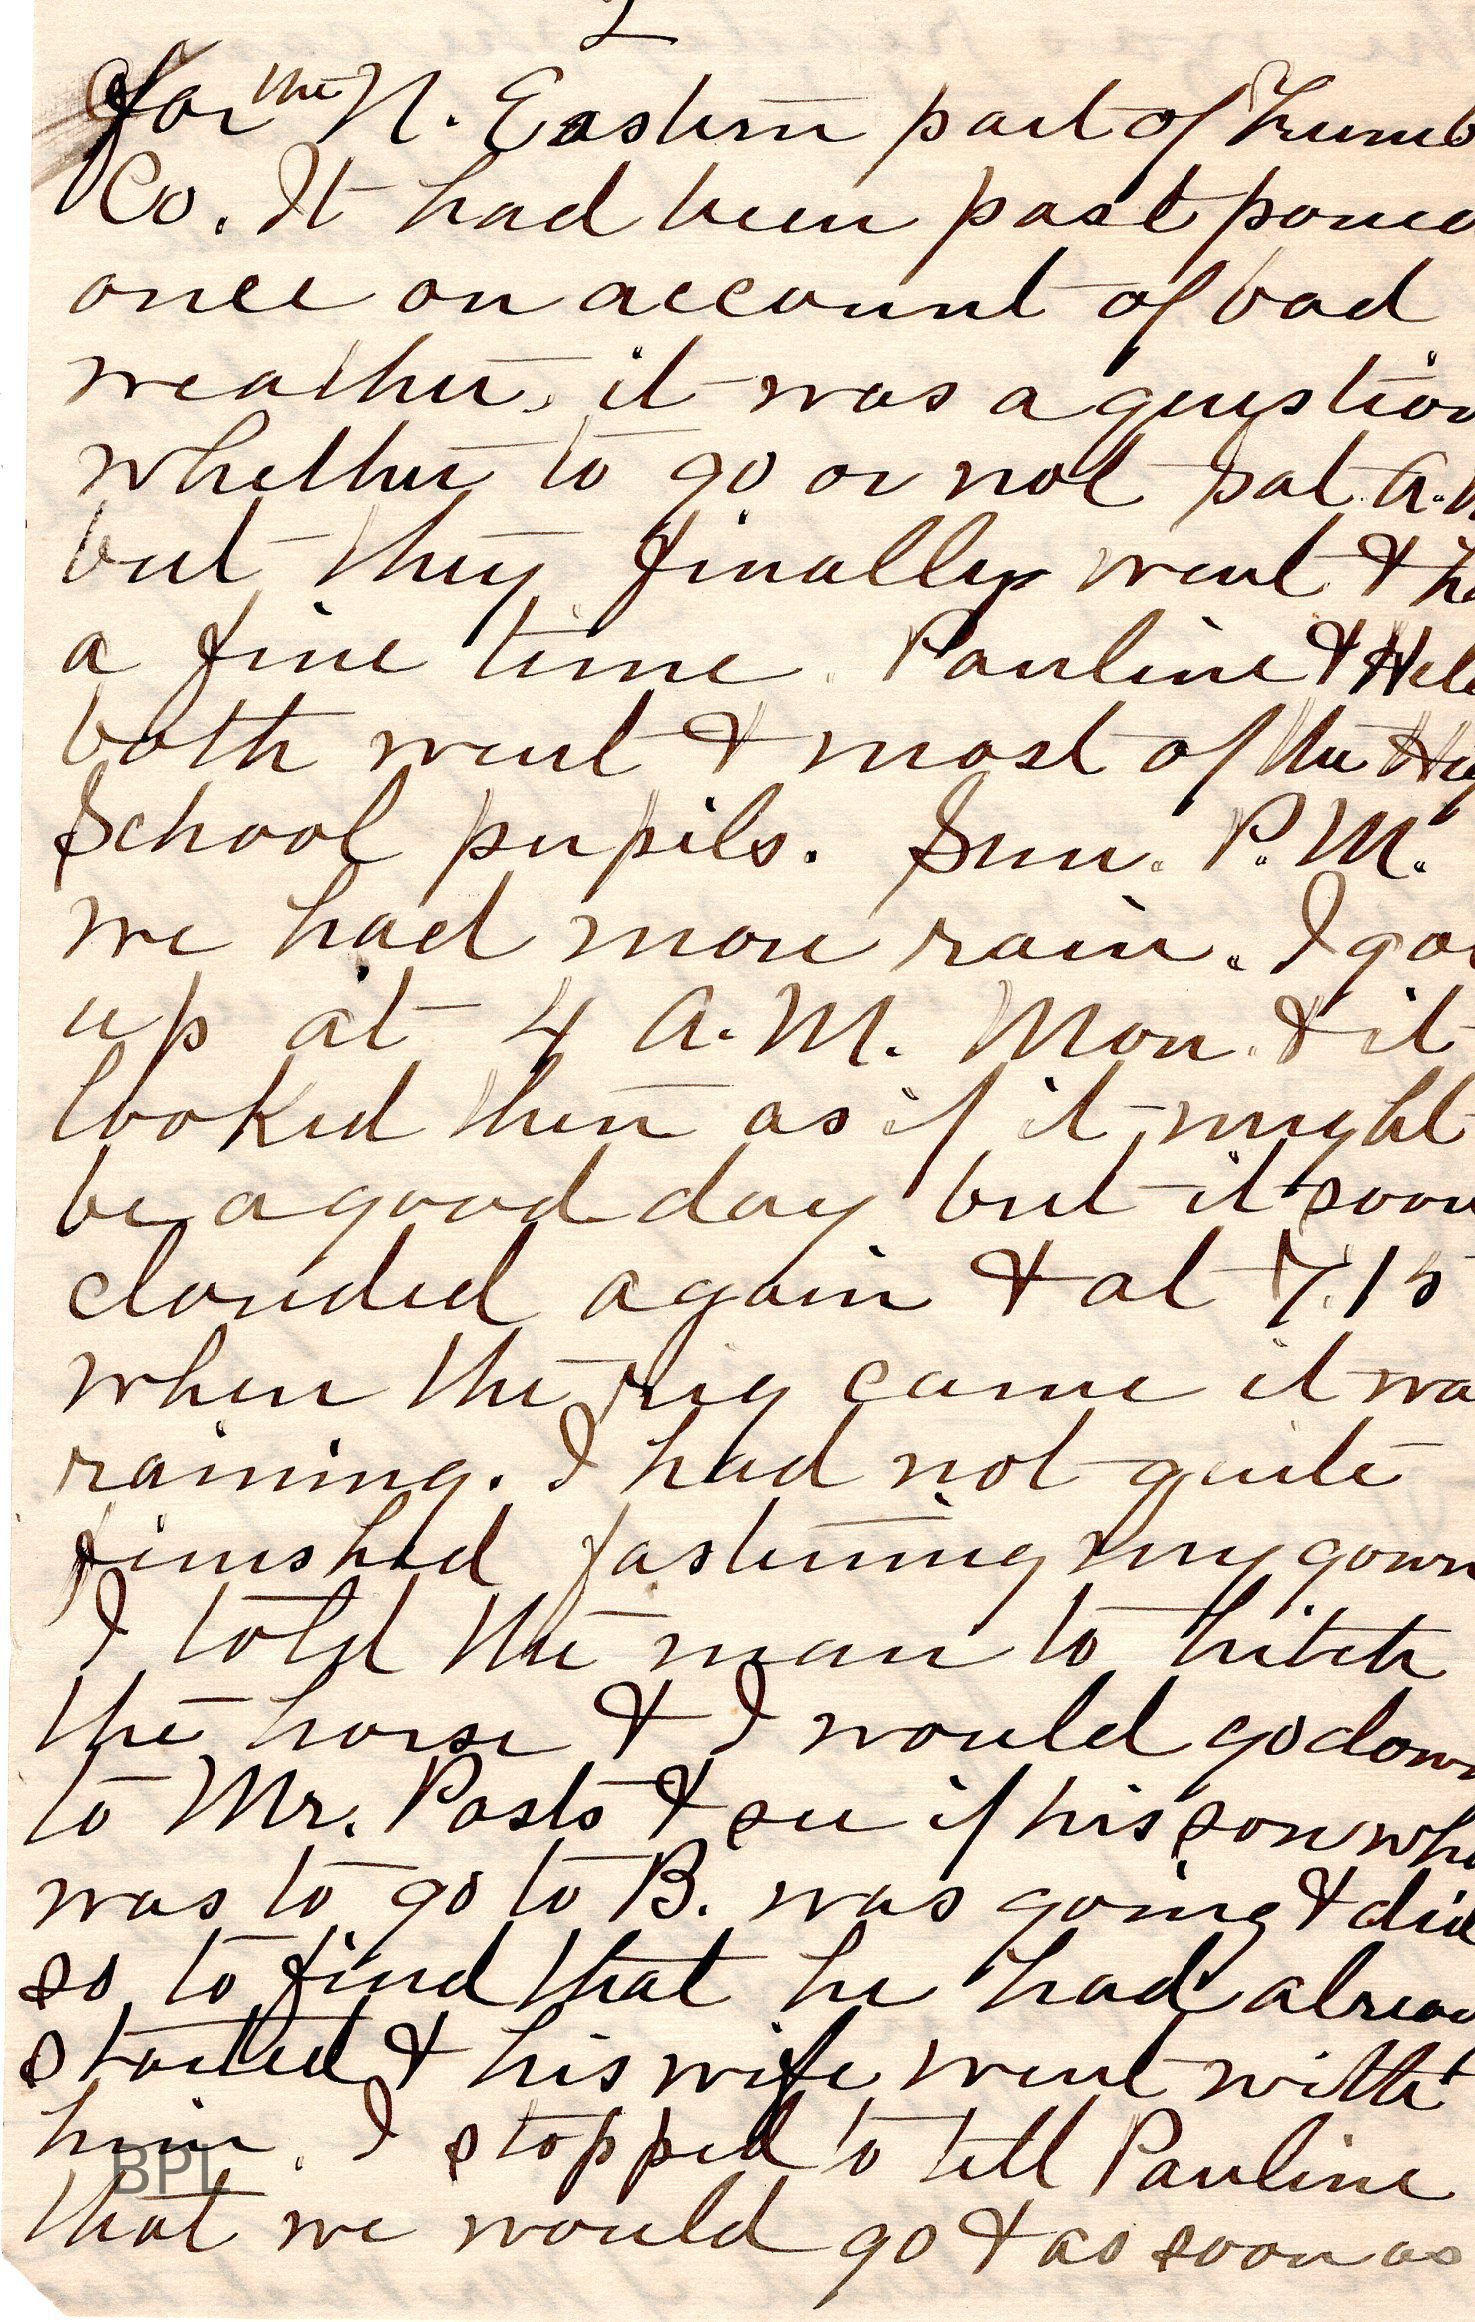 2
for the N. Eastern part of Trumb
Co. It had been postponed
once on account of bad
weather, it was a question
whether to go or not Sat. A.M
but they finally went & ha
a fine time. Pauline & Hele
both went & most of the Hig
School pupils. Sun. P.M.
we had more rain. I got
up at 4 A.M. Mon. & it
looked then as if it might
be a good day but it soon
clouded again & at 7.15
when the rig came it wa
raining. I had not quite
finished fastening my gown
I told the man to hitch
the horse & I would go down
to Mr. Posts & see if his son who
was to go to B. was going & did
so to find that he had alread
started & his wife went with
him. I stopped to tell Pauline
BPL
that we would go & as soon as